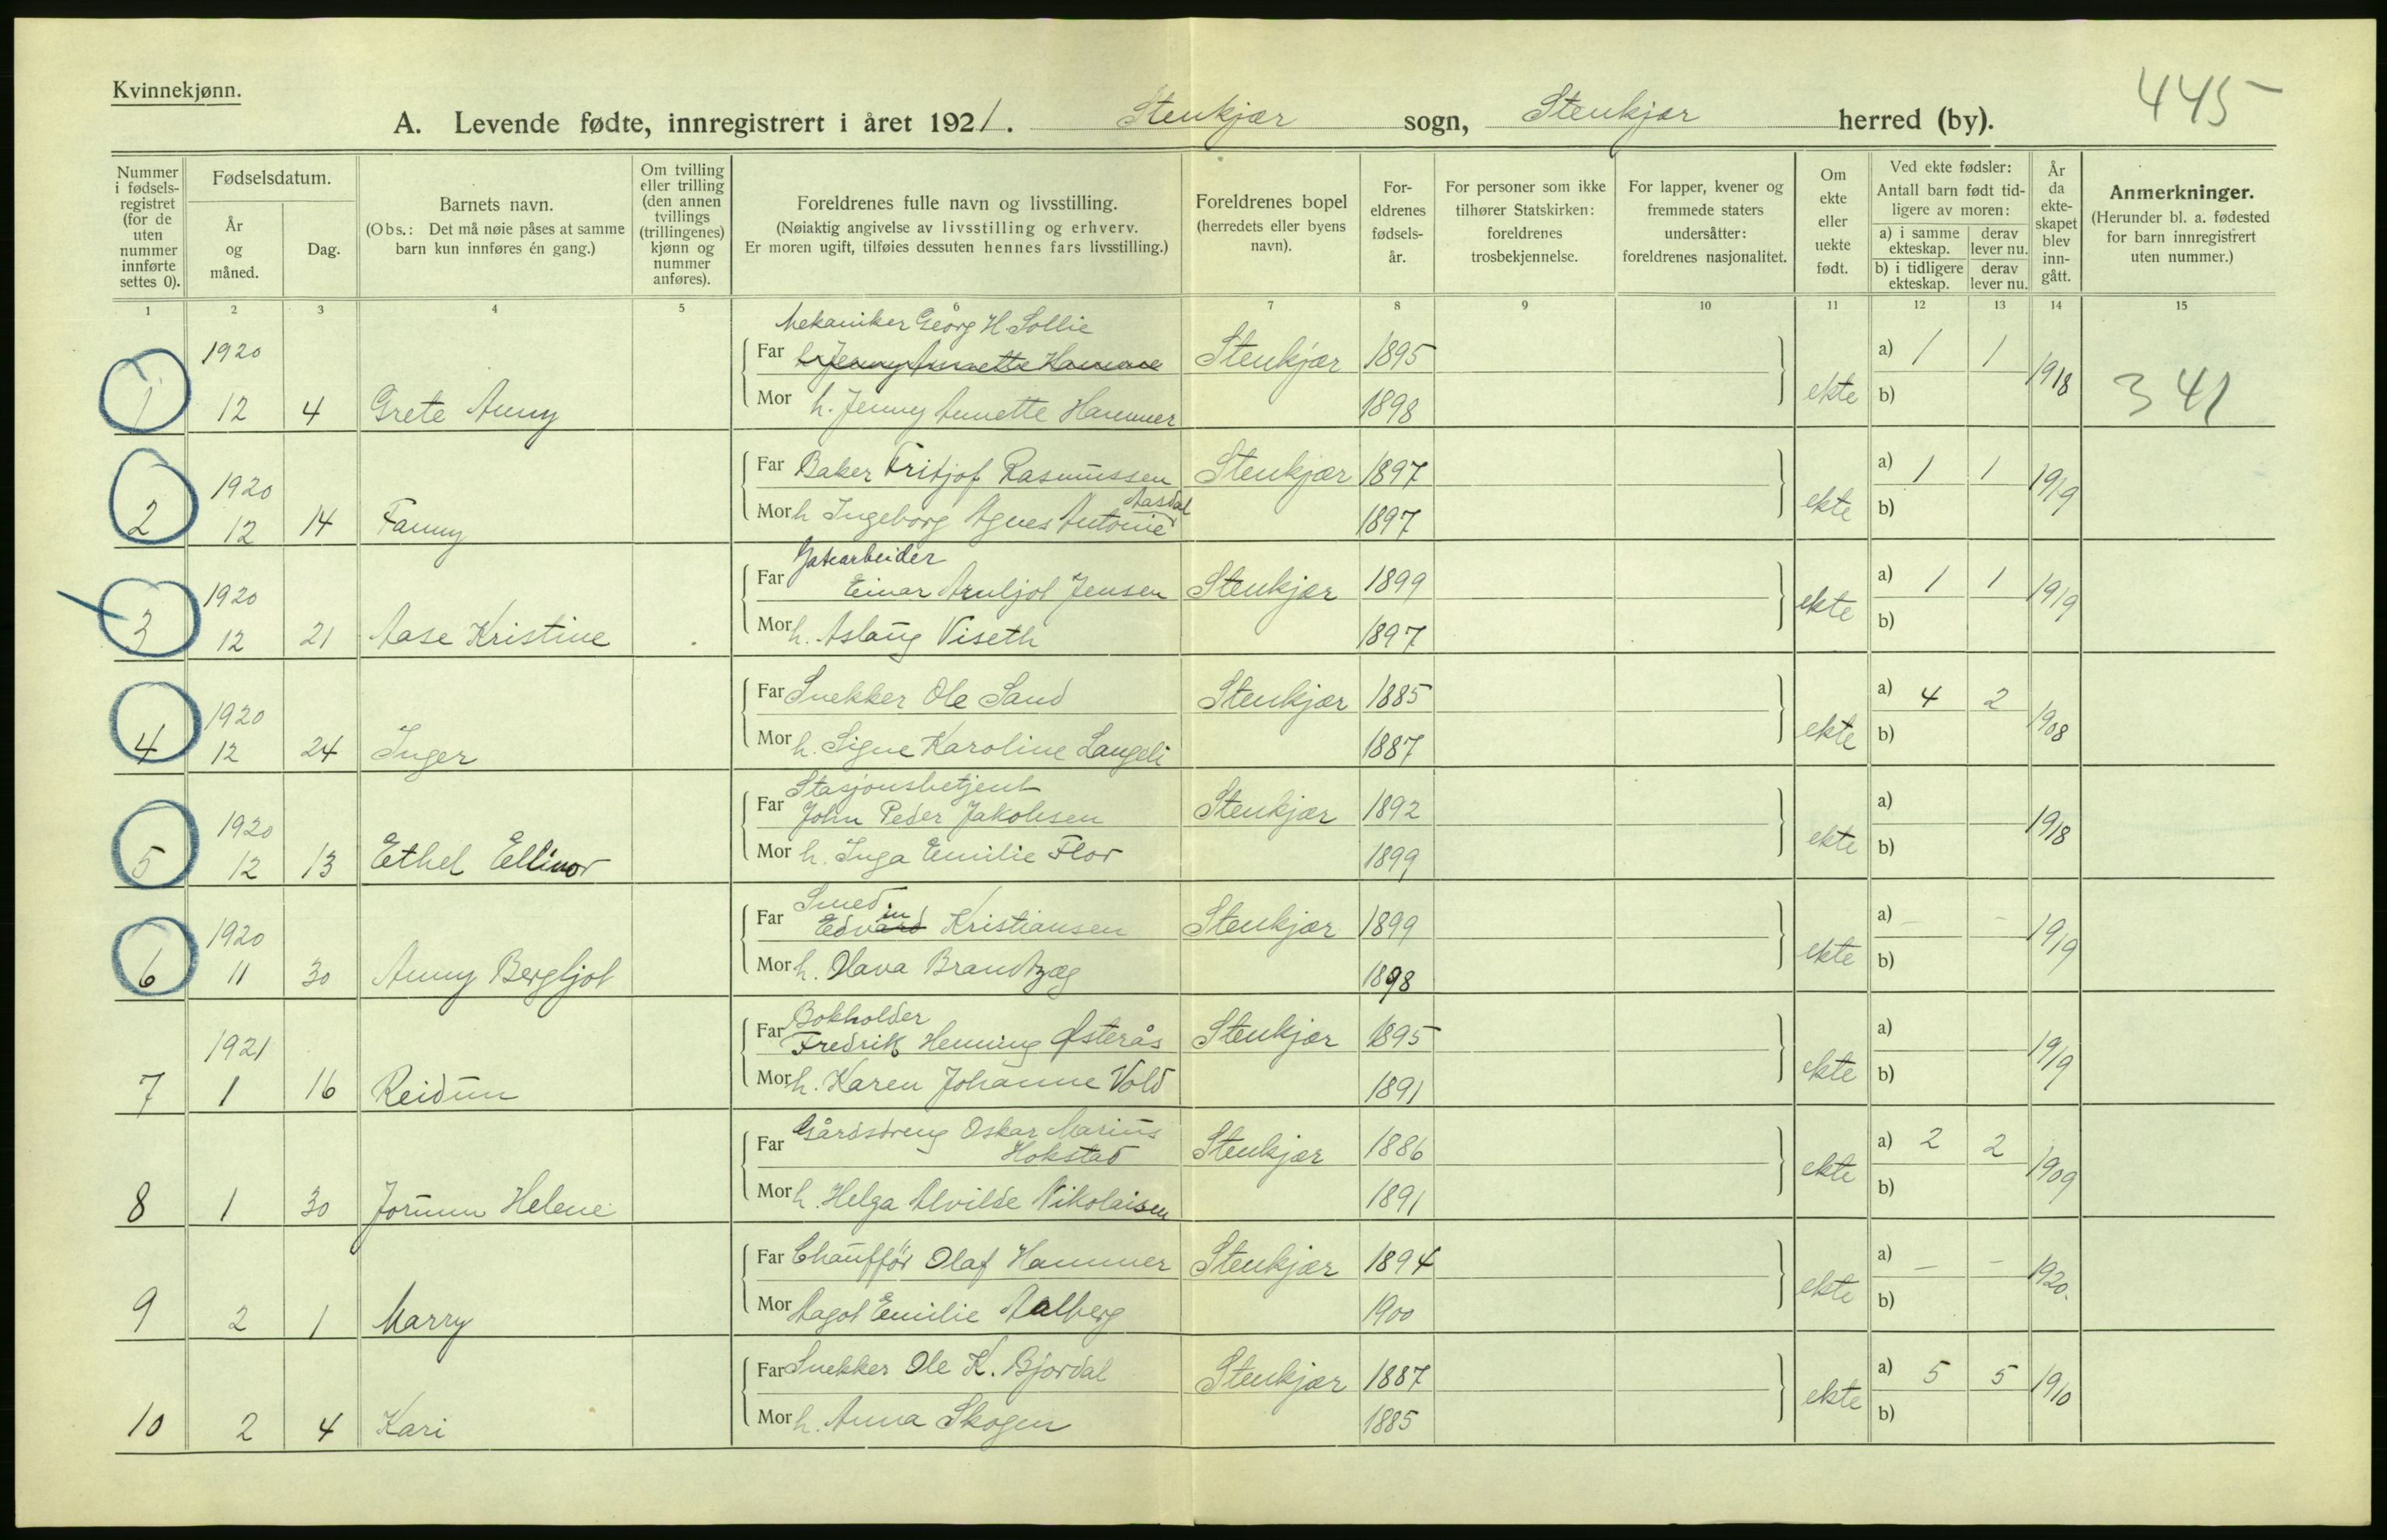 Kvinnekjønn.
445
A. Levende fødte, innregistrert i året 1921. Stenkjær sogn, Stenkjær herred (by).
Nummer i fødsels-registret (for de uten nummer innførte settes 0).
Fødselsdatum.
År og måned.
Dag.
Barnets navn.
(Obs.: Det må nøie påses at samme barn kun innføres én gang.)
Om tvilling eller trilling (den annen tvillings (trillingenes) kjønn og nummer anføres).
Foreldrenes fulle navn og livsstilling.
(Nøiaktig angivelse av livsstilling og erhverv.
Er moren ugift, tilføies dessuten hennes fars livsstilling.)
Foreldrenes bopel
(herredets eller byens navn).
For-eldrenes fødsels-år.
For personer som ikke tilhører Statskirken: foreldrenes trosbekjennelse.
For lapper, kvener og fremmede staters undersåtter: foreldrenes nasjonalitet.
Om ekte eller uekte født.
Ved ekte fødsler:
Antall barn født tid-ligere av moren:
a) i samme ekteskap.
derav lever nu.
b) i tidligere ekteskap.
derav lever nu.
År da ekte-skapet blev inn-gått.
Anmerkninger.
(Herunder bl. a. fødested for barn innregistrert uten nummer.)
1 2 3 4 5 6 7 8 9 10 11 12 13 14 15
Mekaniker Georg H Sollie
1920 Far h Jenny Annette Hammer Stenkjær 1895 a) 1 1 1918
1 12 4 Grete Anny Mor h. Jenny Annette Hammer 1898 ekte b) 341
1920 Far Baker Fritjof Rasmussen Stenkjær 1897 a) 1 1 1919
2 12 14 Fanny Mor h Ingeborg Agnes Antonie Aasdal 1897 ekte b)
Gatearbeider
1920 Far Einar Arnljot Jensen Stenkjær 1899 a) 1 1 1919
3 12 21 Aase Kristine Mor h. Aslaug Viseth 1897 ekte b)
1920 Far Snekker Ole Sand Stenkjær 1885 a) 4 2 1908
4 12 24 Inger Mor h. Signe Karoline Langeli 1887 ekte b)
Stasjonsbetjent
1920 Far John Peder Jakobsen Stenkjær 1892 a) 1918
5 12 13 Ethel Ellinor Mor h. Inga Emilie Flor 1899 ekte b)
Smed in
1920 Far Edvard Kristiansen Stenkjær 1899 a) – – 1919
6 11 30 Anny Bergljot Mor h. Olava Brandtzæg 1898 ekte b)
Bokholder
1921 Far Fredrik Henning Østerås Stenkjær 1895 a) 1919
7 1 16 Reidun Mor h. Karen Johanne Vold 1891 ekte b)
Far Gårdsdreng Oskar Marius Hokstad Stenkjær 1886 a) 2 2 1909
8 1 30 Jorunn Helene Mor h. Helga Alvilde Nikolaisen 1891 ekte b)
Far Chauffør Olaf Hammer Stenkjær 1894 a) – – 1920.
9 2 1 Marry Mor Magot Emilie Aalberg 1900 ekte b)
Far Snekker Ole K. Bjørdal Stenkjær 1887 a) 5 5 1910
10 2 4 Kari Mor h. Anna Skogen 1885 ekte b)